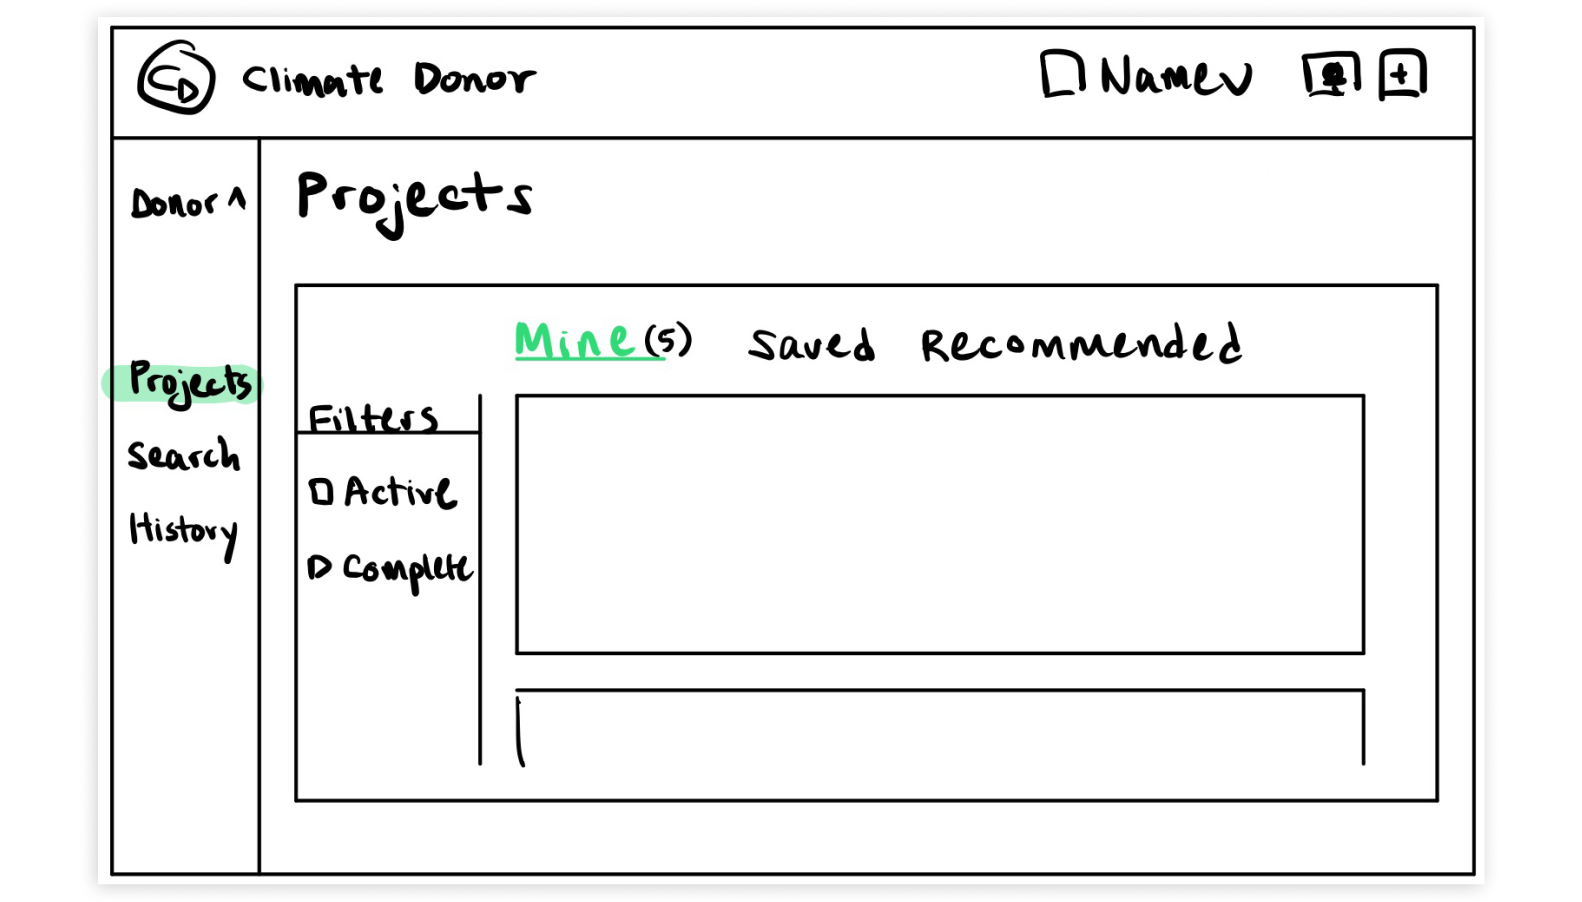 CD Climate Donor Name
Donor
Projects
Projects
Search
History
Mine (5) Saved Recommended
Filters
Active
Complete